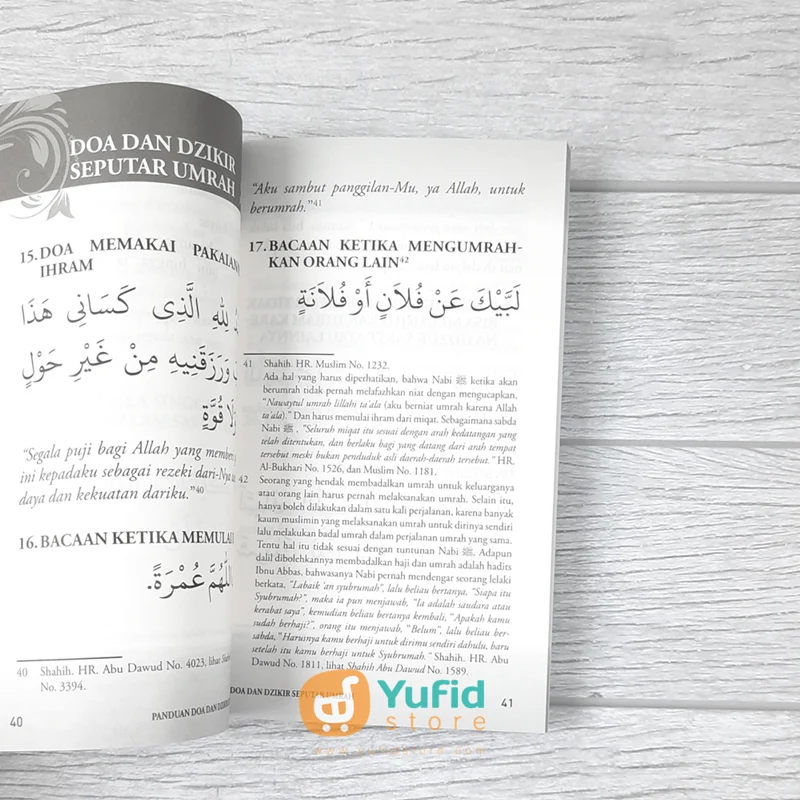 DOA DAN DZIKIR
SEPUTAR UMRAH
15. DOA MEMAKAI PAKAIAN
IHRAM
لِلهِ الَّذِى كَسَانِى هَذَا
وَرَزَقَنِيهِ مِنْ غَيْرِ حَوْلٍ
قُوَّةٍ
“Segala puji bagi Allah yang
ini kepadaku sebagai rezeki dari-Nya
daya dan kekuatan dariku.”40
16. BACAAN KETIKA MEMULAI
اللَّهُمَّ عُمْرَةً.
40 Shahih. HR. Abu Dawud No. 4023, lihat
No. 3394.
40 PANDUAN DOA DAN
“Aku sambut panggilan-Mu, ya Allah, untuk
berumrah.”41
17. BACAAN KETIKA MENGUMRAH-
KAN ORANG LAIN42
لَبَّيْكَ عَنْ فُلاَنٍ أَوْ فُلاَنَةٍ
41 Shahih. HR. Muslim No. 1232.
Ada hal yang harus diperhatikan, bahwa Nabi ﷺ ketika akan
berumrah tidak pernah melafazhkan niat dengan mengucapkan,
“Nawaytul umrah lillahi ta’ala (aku berniat umrah karena Allah
ta’ala).” Dan harus memulai ihram dari miqat. Sebagaimana sabda
Nabi ﷺ, “Seluruh miqat itu sesuai dengan arah kedatangan yang
telah ditentukan, dan berlaku bagi yang datang dari arah tempat
tersebut meski bukan penduduk asli daerah-daerah tersebut.” HR.
Al-Bukhari No. 1526, dan Muslim No. 1181.
42 Seorang yang hendak membadalkan umrah untuk keluarganya
atau orang lain harus pernah melaksanakan umrah. Selain itu,
hanya boleh dilakukan dalam satu kali perjalanan, karena banyak
kaum muslimin yang melaksanakan umrah untuk dirinya sendiri
lalu melakukan badal umrah dalam perjalanan umrah yang sama.
Tentu hal itu tidak sesuai dengan tuntunan Nabi ﷺ. Adapun
dalil dibolehkannya membadalkan haji dan umrah adalah hadits
Ibnu Abbas, bahwasanya Nabi pernah mendengar seorang lelaki
berkata, “Labaik ‘an syubrumah”, lalu beliau bertanya, “Siapa itu
Syubrumah?”, maka ia pun menjawab, “Ia adalah saudara atau
kerabat saya”, kemudian beliau bertanya kembali, “Apakah kamu
sudah berhaji?”, orang itu menjawab, “Belum”, lalu beliau ber-
sabda, “Harusnya kamu berhaji untuk dirimu sendiri dahulu, baru
setelah itu kamu berhaji untuk Syubrumah.” Shahih. HR. Abu
Dawud No. 1811, lihat Shahih Abu Dawud No. 1589.
DOA DAN DZIKIR SEPUTAR UMRAH 41
Yufid
store